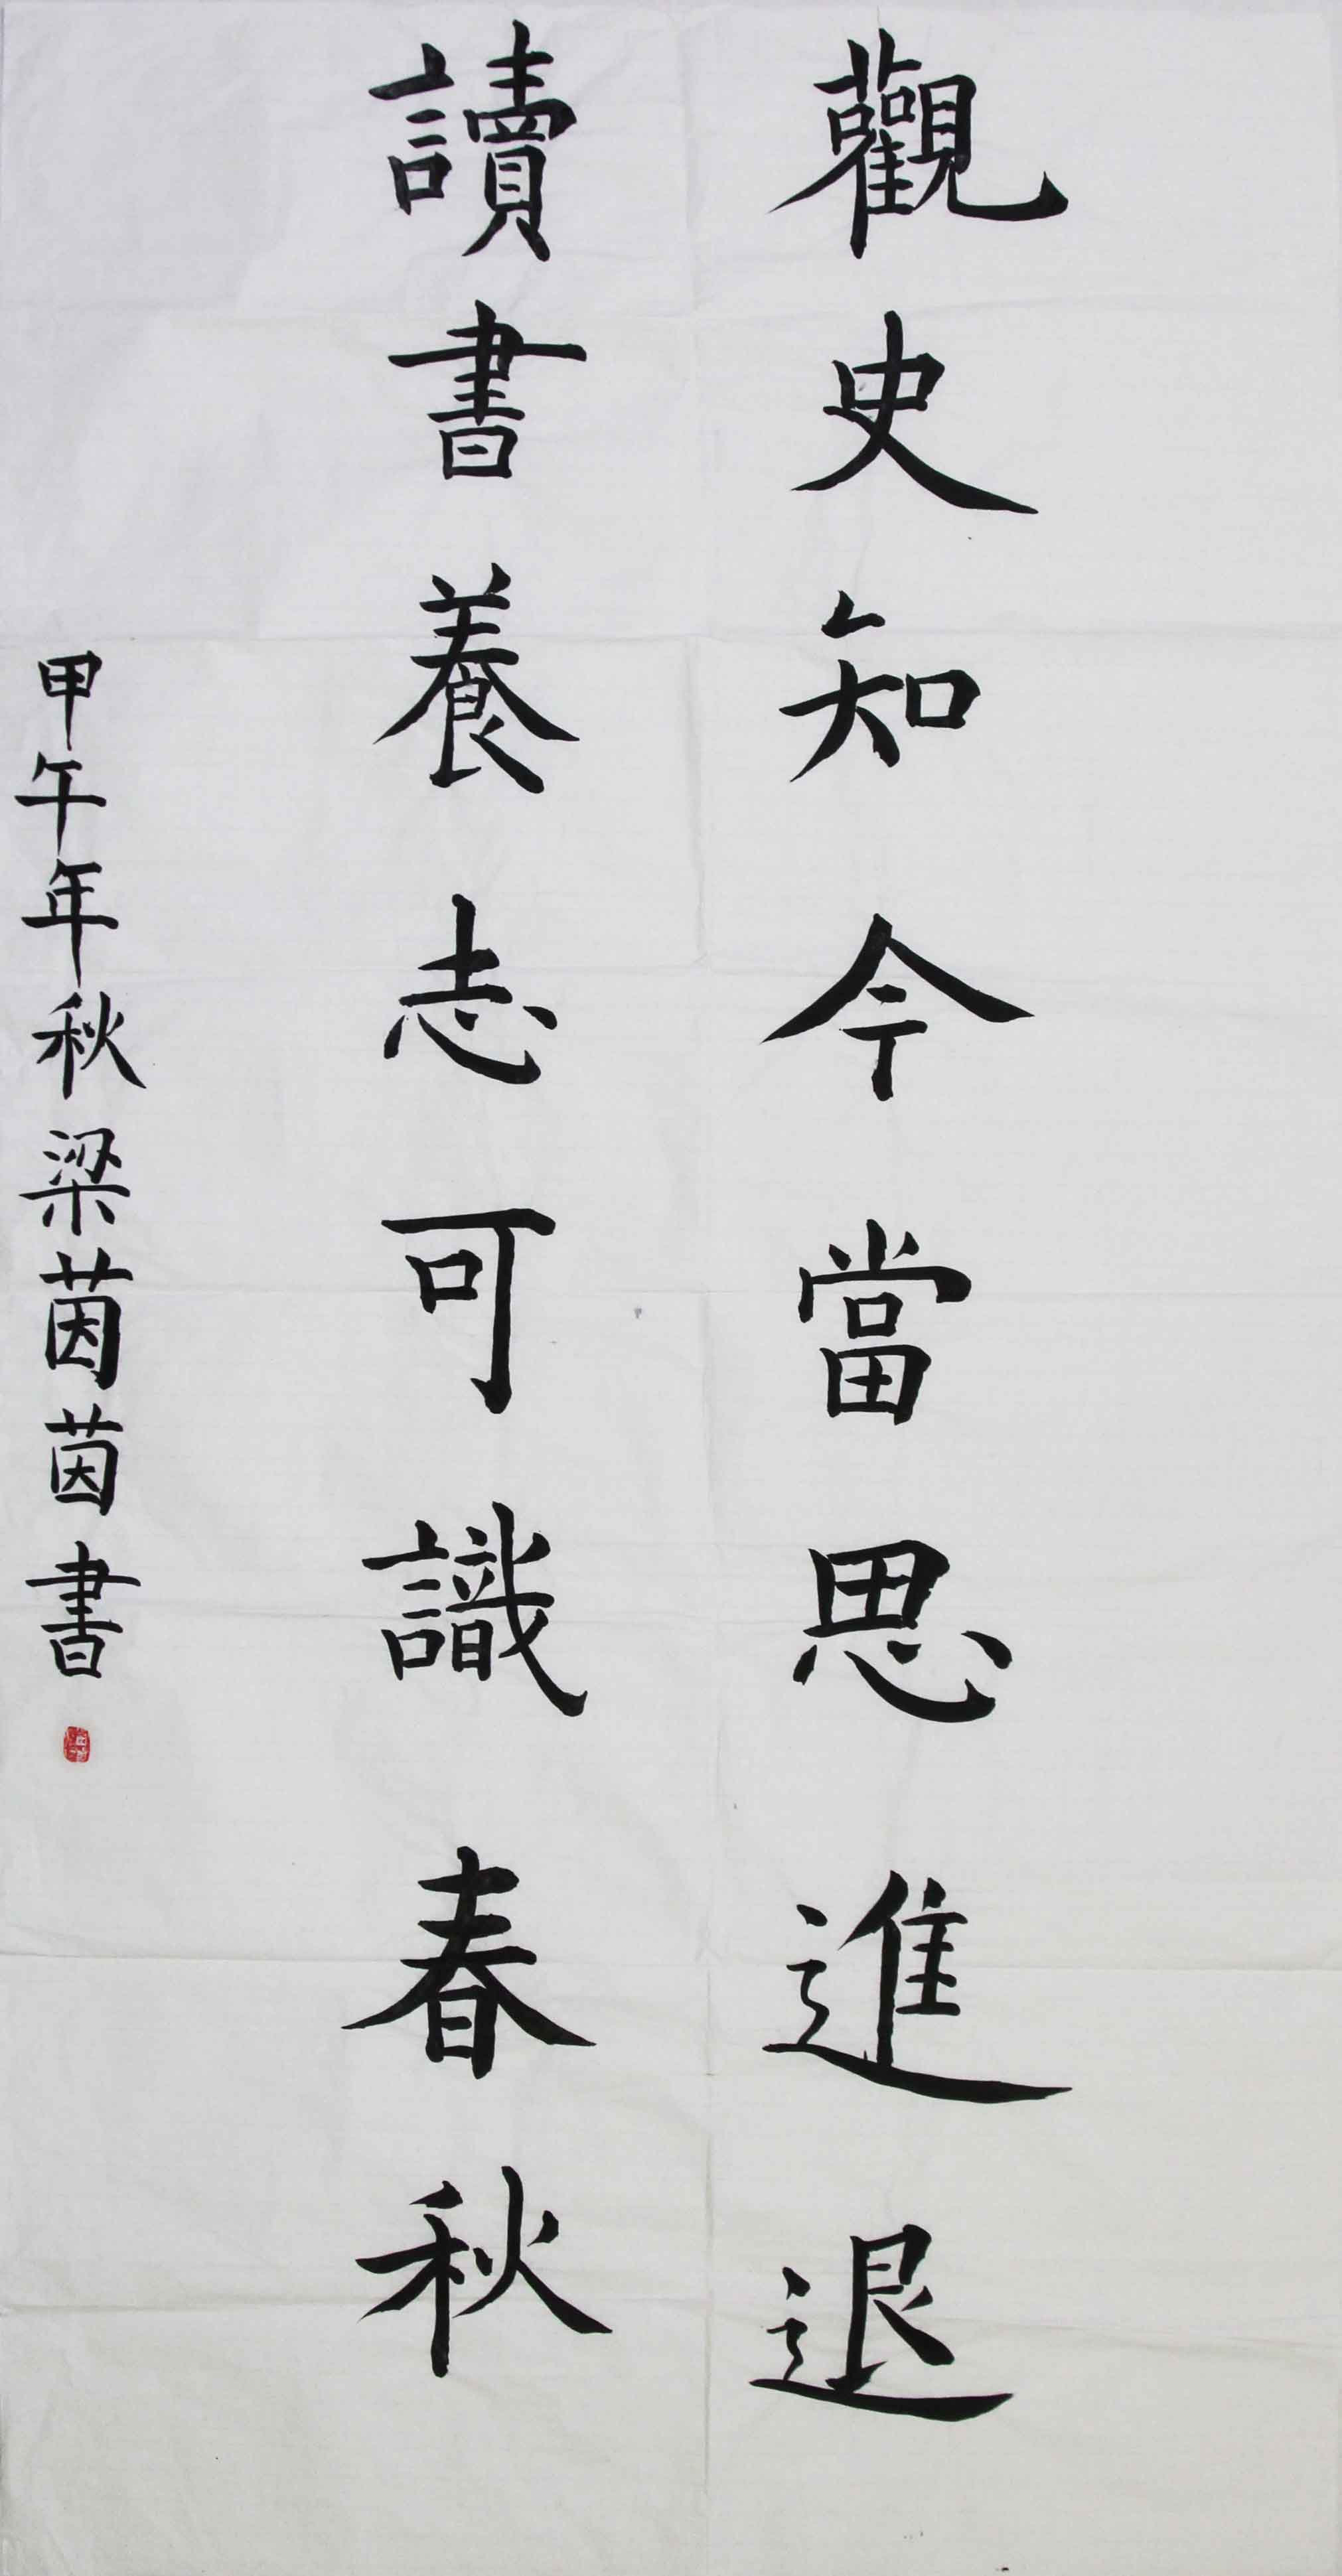 觀史知今當思進退
讀書養志可識春秋
甲午年秋梁茵茵書